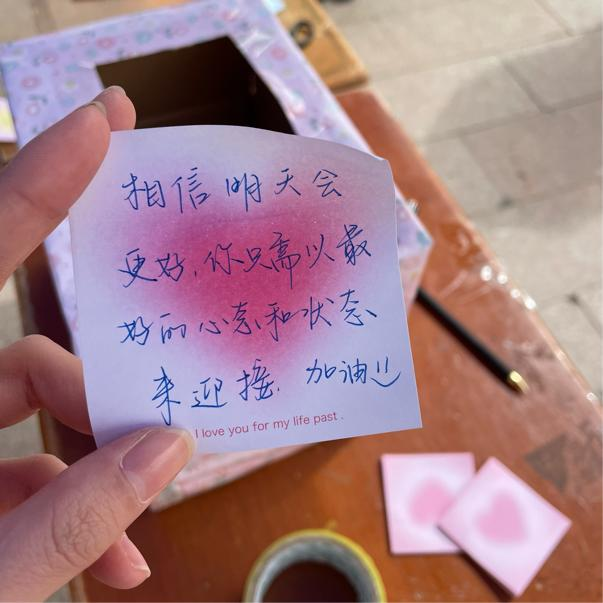 相信明天会
更好,你只需以最
好的心态和状态
来迎接. 加油!!
I love you for my life past .